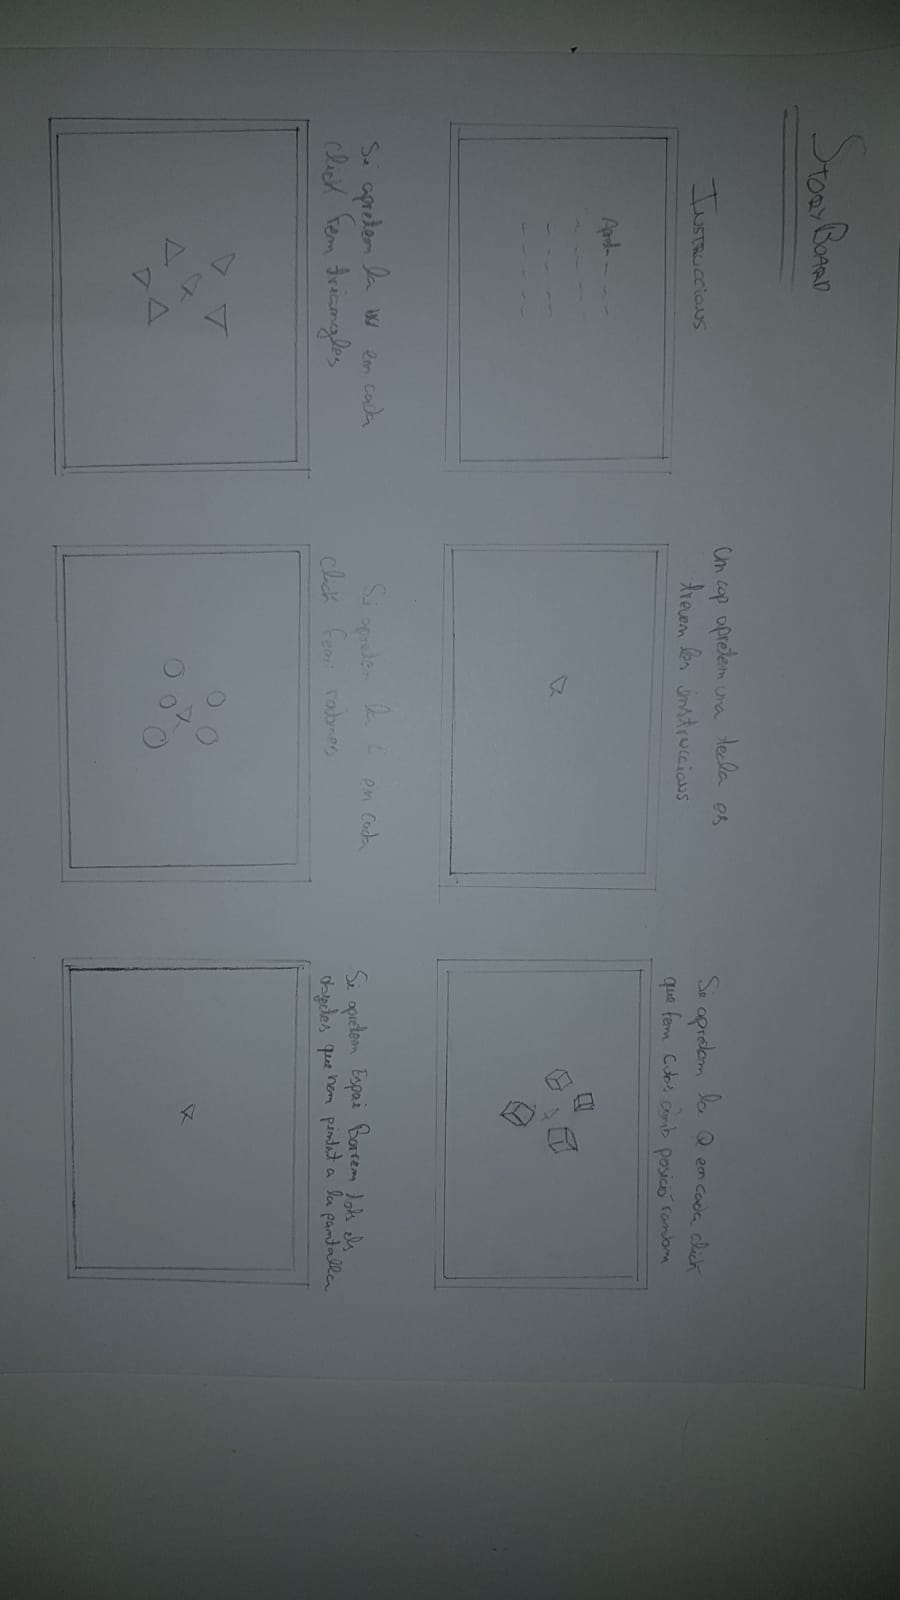 STORYBOARD
INSTRUCCIONS
Apreta
Un cop apretem una tecla es
treuen les instruccions
Si apretem la Q en cada click
que fem cubs amb posició random
Si apretem la W en cada
click fem triangles
Si apretem la E en cada
click fem rodones
Si apretem Espai Borrem tots els
objectes que hem pintat a la pantalla